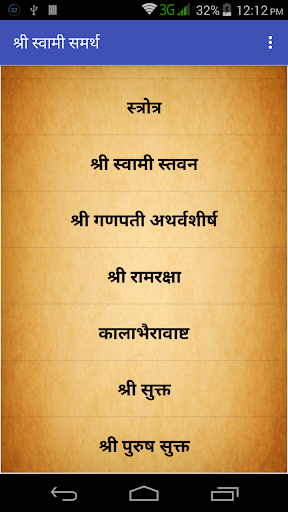 32 3G 32% 12:12 PM
श्री स्वामी समर्थ
स्त्रोत्र
श्री स्वामी स्तवन
श्री गणपती अथर्वशीर्ष
श्री रामरक्षा
कालाभैरावाष्ट
श्री सुक्त
श्री पुरुष सुक्त